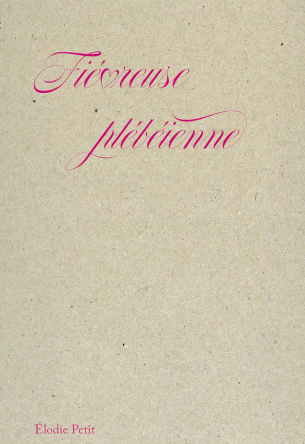 Fiévreuse
plébéienne
Élodie Petit